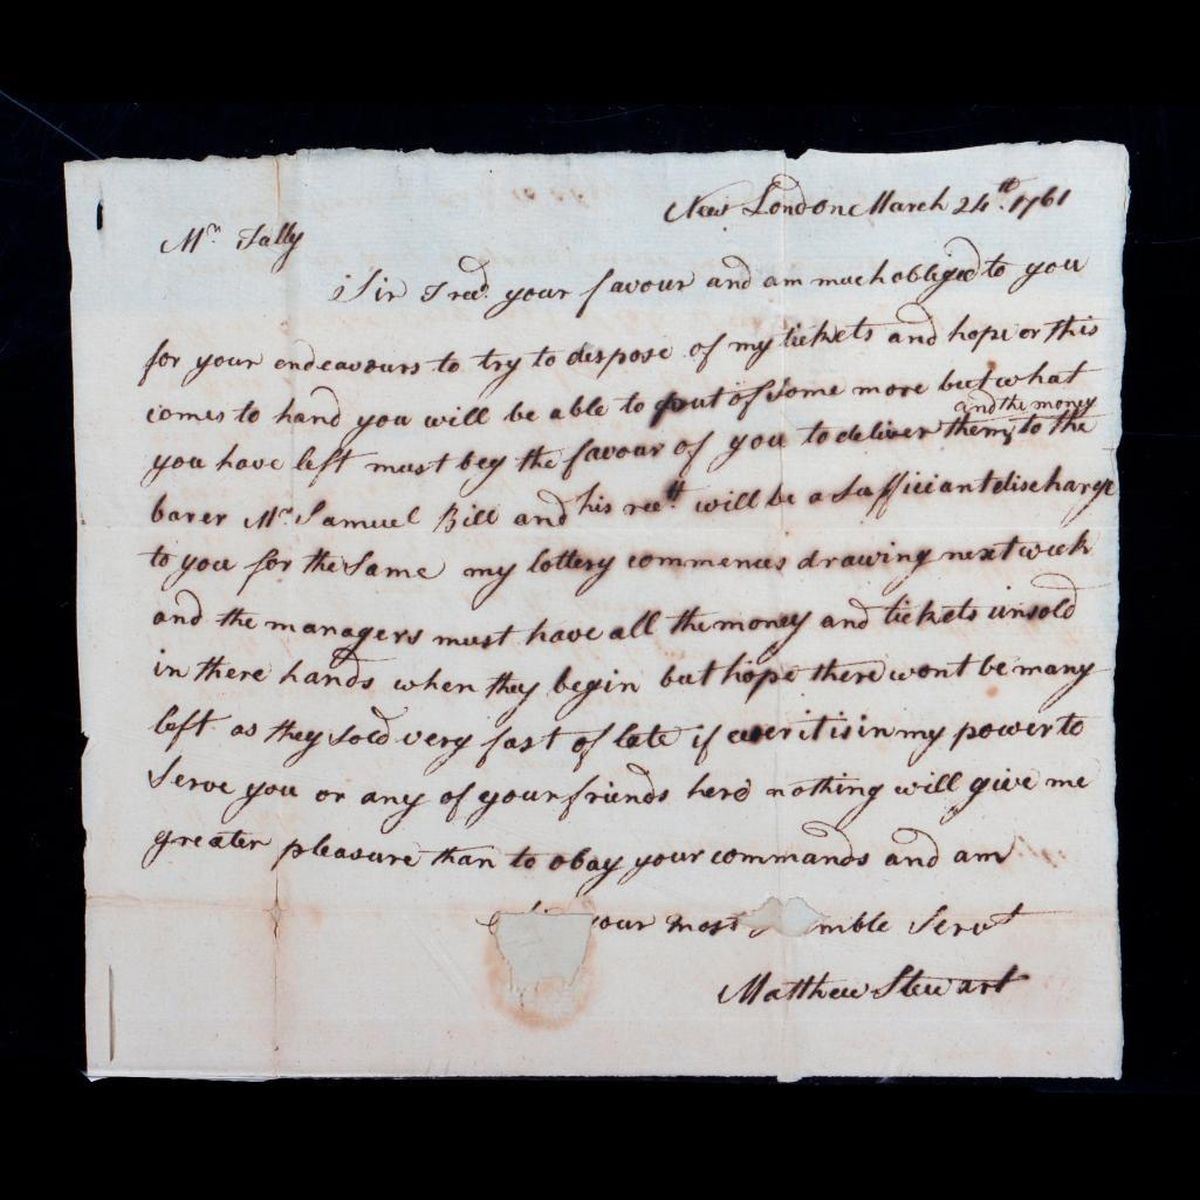 New London March 24th. 1761
Mr. Tally
Sir I recd. your favour and am much obliged to you
for your endeavours to try to dispose of my tickets and hope or this
comes to hand you will be able to put of some more but what
and the money
you have left must beg the favour of you to deliver them to the
barer Mr. Samuel Bill and his rectt. will be a Sufficiant discharge
to you for the Same my lottery commences drawing next week
and the managers must have all the money and tickets unsold
in there hands when they begin but hope there wont be many
left as they sold very fast of late if ever it is in my power to
Serve you or any of your friends here nothing will give me
greater pleasure than to obay your commands and am
your most mble Servt
Matthew Stewart